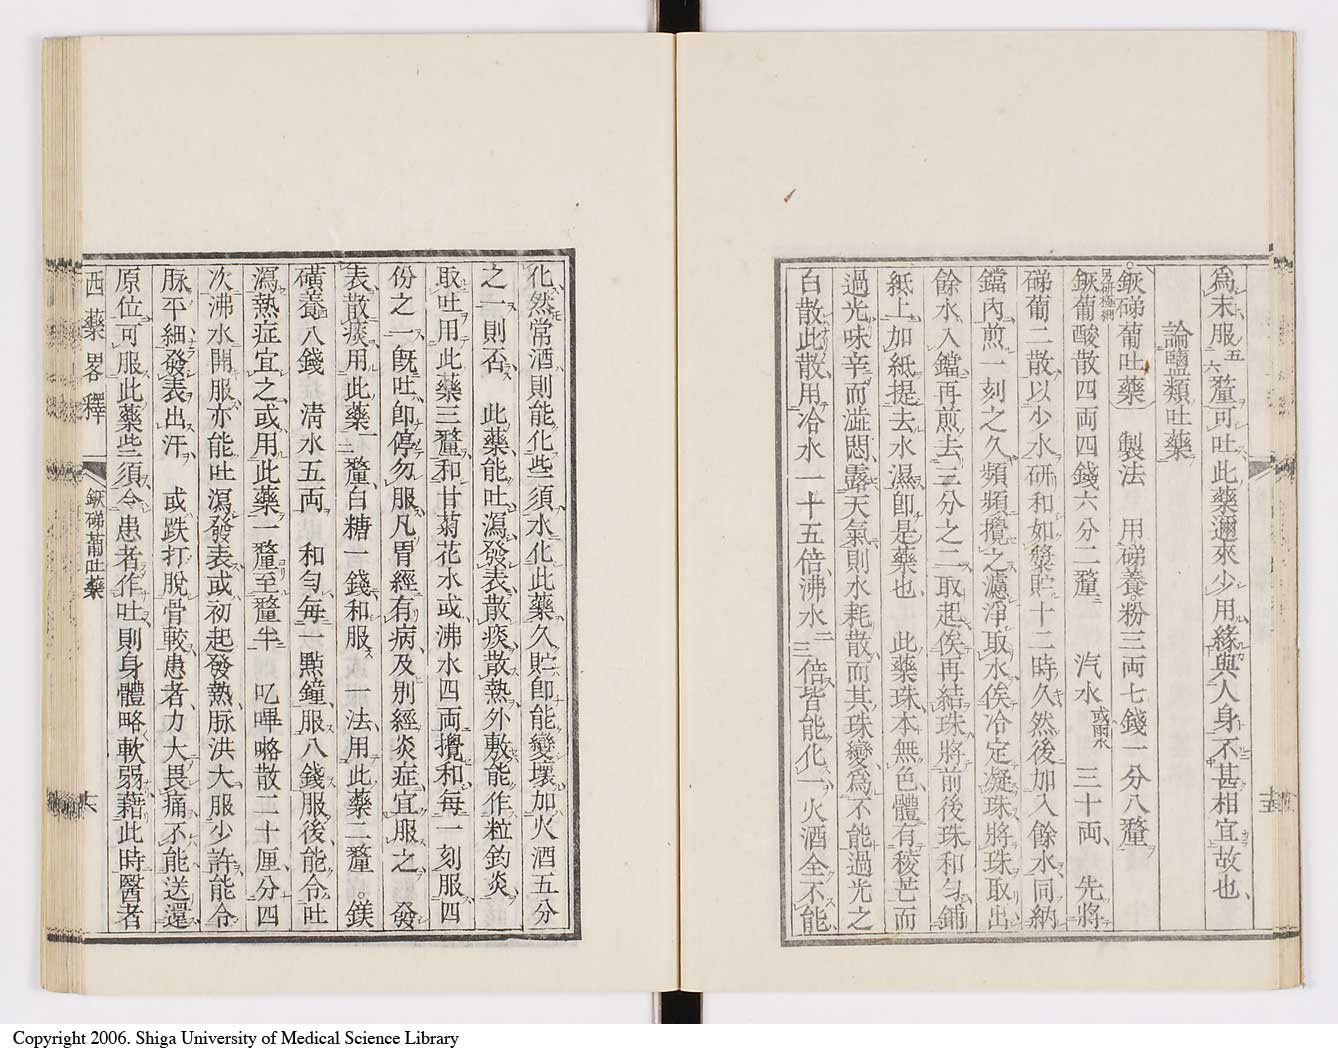 爲末服五六釐可吐此藥邇來少用緣與人身不甚相宜故也
論鹽類吐藥
鍁碲葡吐藥　製法　用碲養粉三両七錢一分八釐
鍁葡酸散四両四錢六分二釐　汽水或雨水　三十両　先將
碲葡二散以少水研和如漿貯十二時久然後加入餘水同納
鐺內煎一刻之久頻頻攪之濾淨取水俟冷定凝珠將珠取出
餘水入鐺再煎去三分之二取起俟再結珠將前後珠和勻鋪
紙上加紙提去水濕卽是藥也　此藥珠本無色體有稜芒而
過光味辛而澁悶露天氣則水耗散而其珠變爲不能過光之
白散此散用冷水一十五倍沸水二三倍皆能化一火酒全不能
化然常酒則能化些須水化此藥久貯卽能變壞加火酒五分
之一則否　此藥能吐瀉發表散痰散熱外敷能作粒釣炎
取吐用此藥三釐和甘菊花水或沸水四両攪和每一刻服四
份之一旣吐卽停勿服凡胃經有病及別經炎症宜服之　發
表散痰用此藥一二釐白糖一錢和服　一法用此藥二釐　鎂
磺養八錢　清水五両　和勻每一㸃鐘服八錢服後能令吐
瀉熱症宜之或用此藥一釐至釐半　叱嗶咯散二十厘分四
次沸水開服亦能吐瀉發表或初起發熱脉洪大服少許能令
脉平細發表出汗　或跌打脫骨較患者力大畏痛不能送還
原位可服此藥些須令患者作吐則身體略軟弱藉此時醫者
西藥畧釋
鍁碲葡吐藥
十六